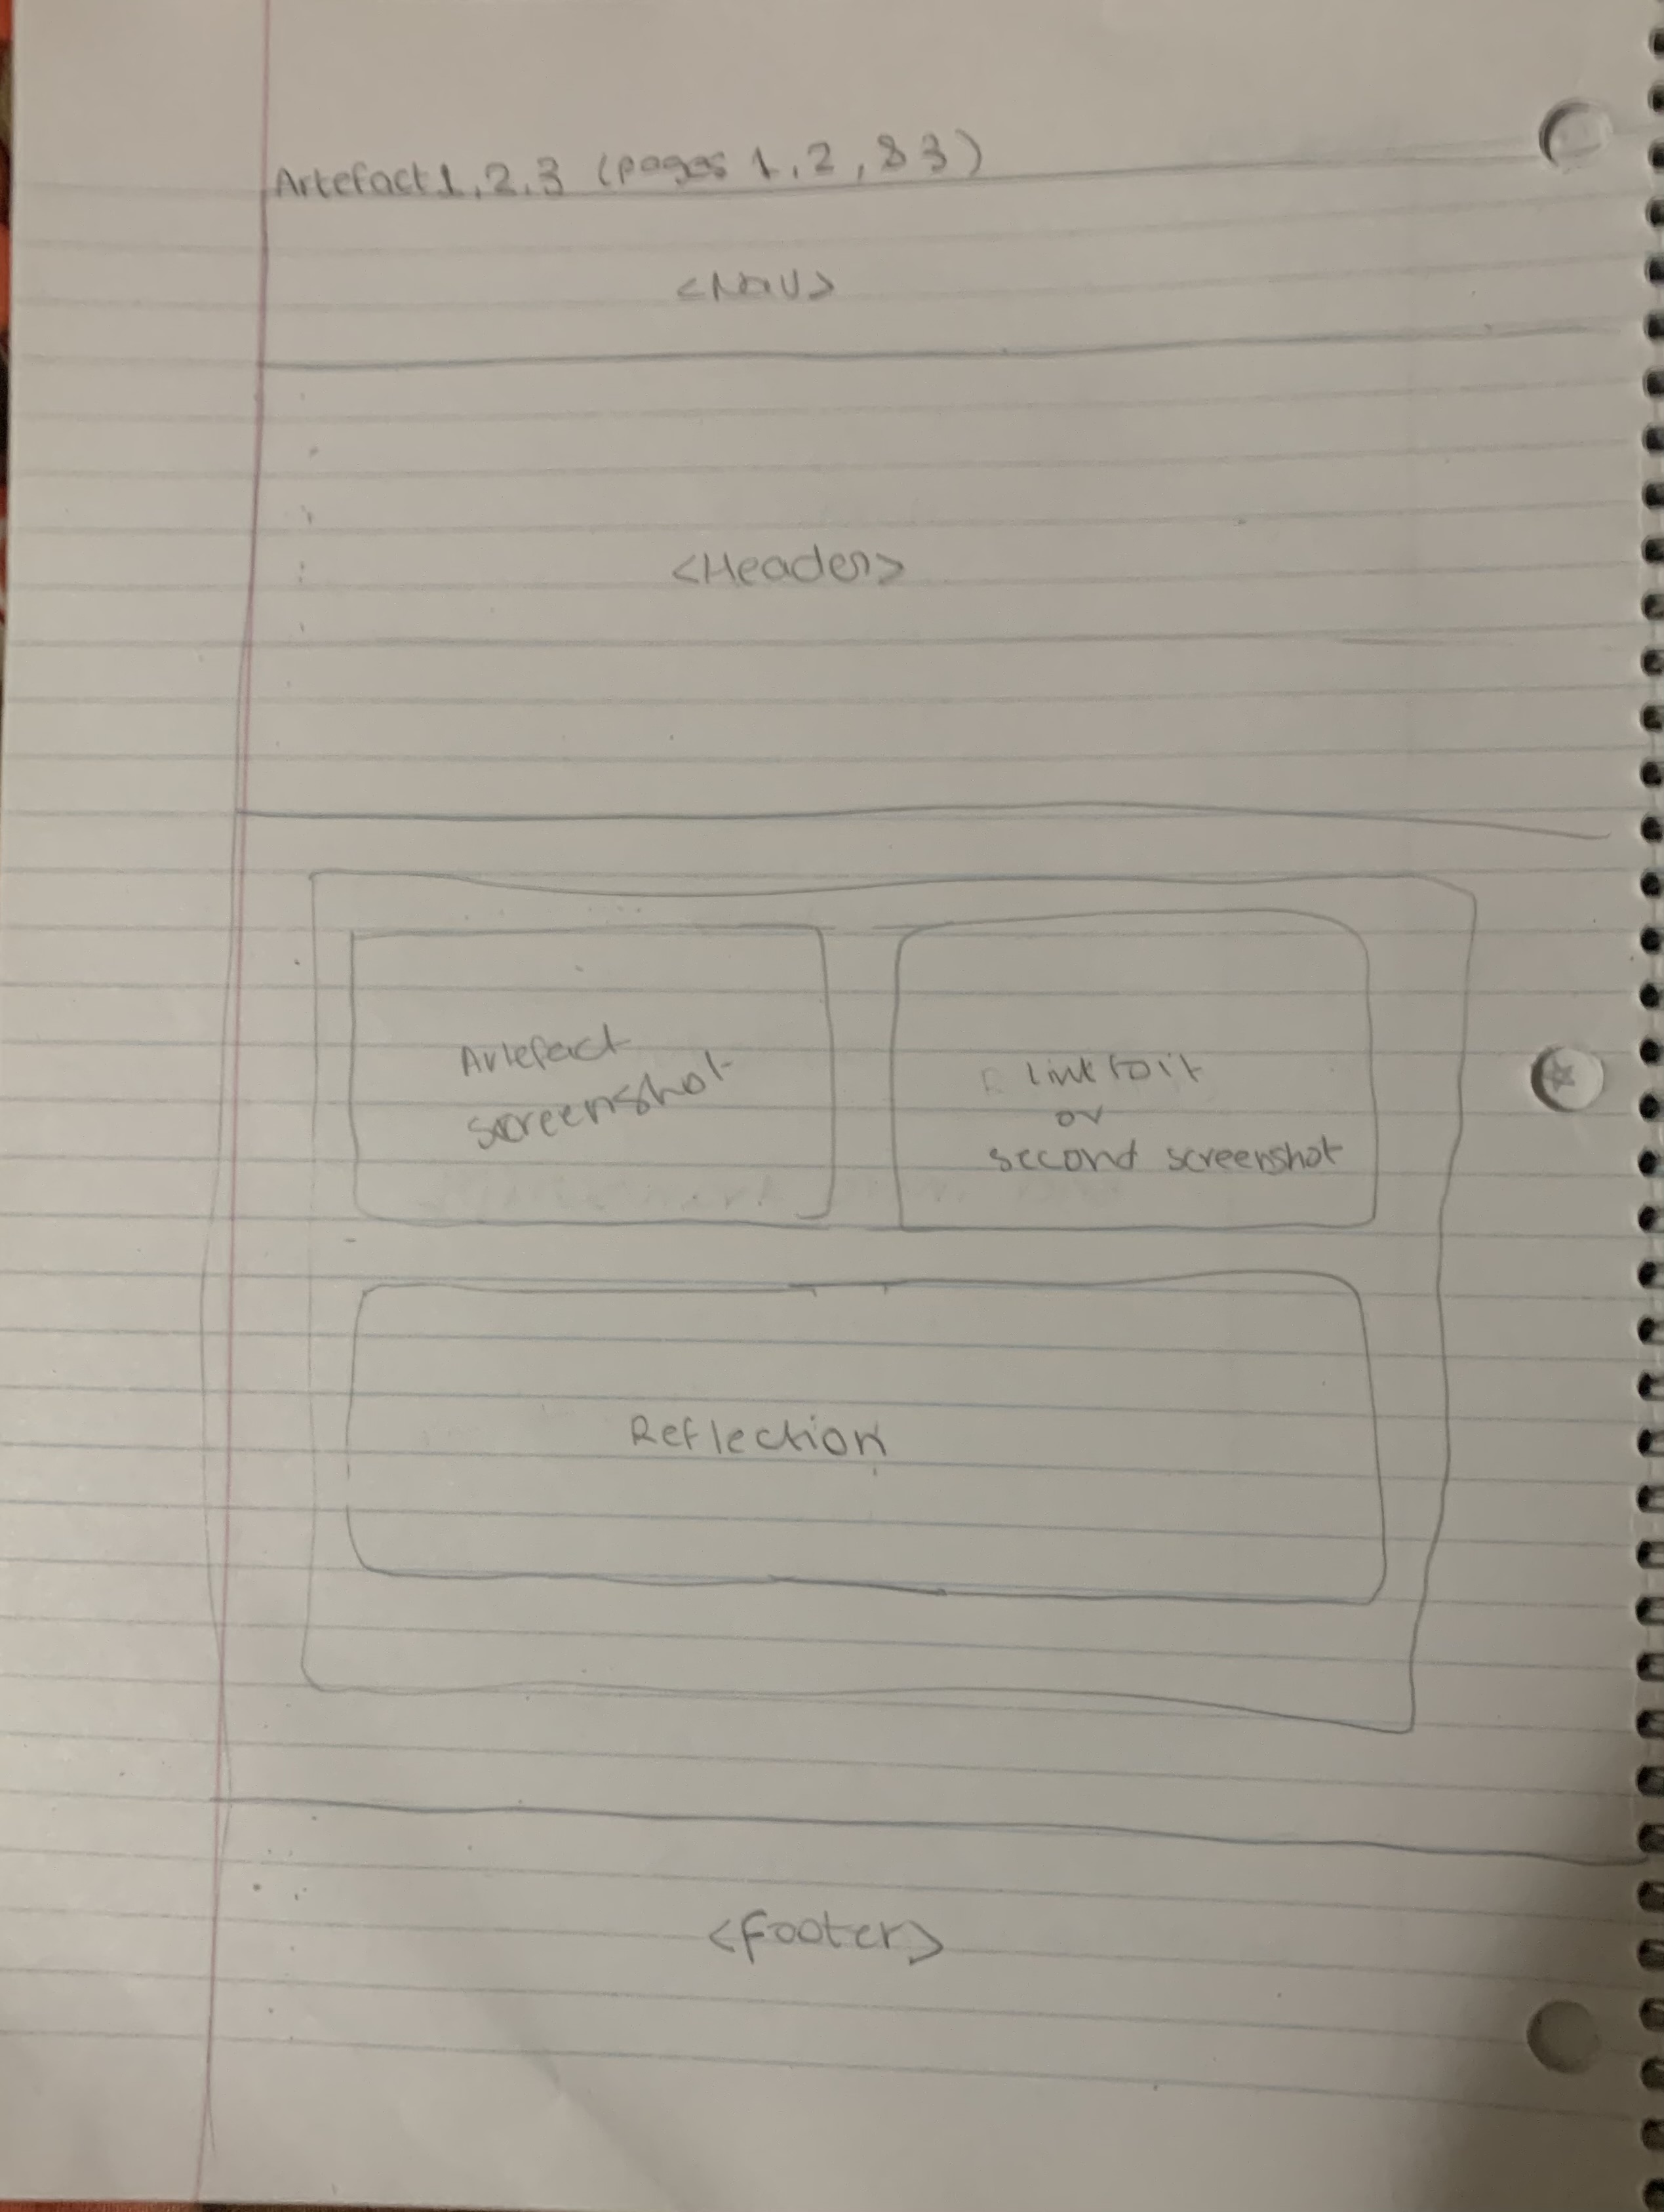 Artefact 1, 2, 3 (pages 1, 2, & 3)
<Nav>
<Header>
Artefact
screenshot
link to it
or
second screenshot
Reflection
<footer>